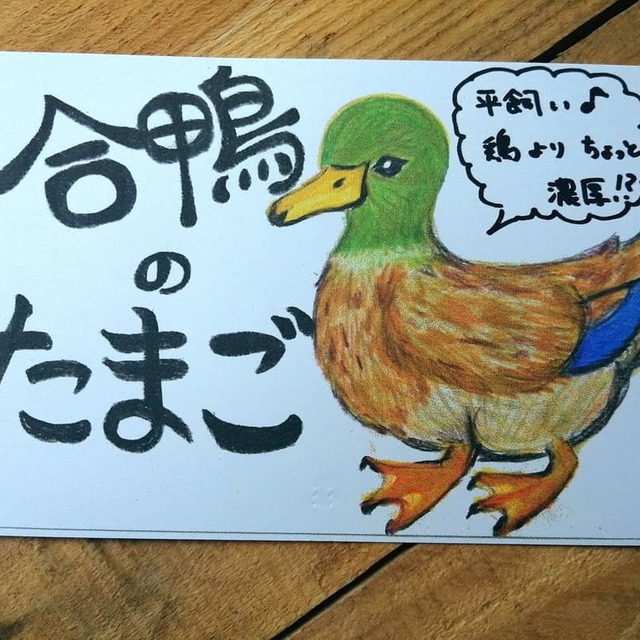 合鴨
の
たまご
平飼い♪
鶏よりちょっと
濃厚!?